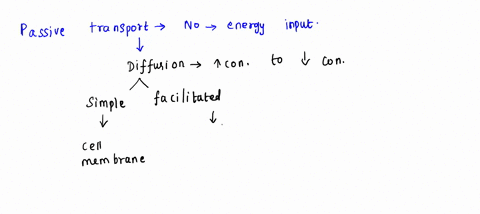 Passive transport → No → energy input.
↓
Diffusion → ↑ con. to ↓ con.
Simple facilitated
↓ ↓
cell
membrane